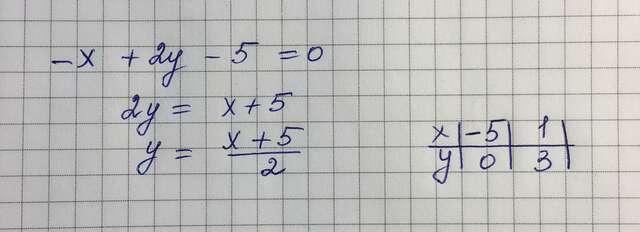 -x + 2y - 5 = 0
2y = x + 5
y = (x + 5)/2
x | -5 | 1 |
y | 0 | 3 |